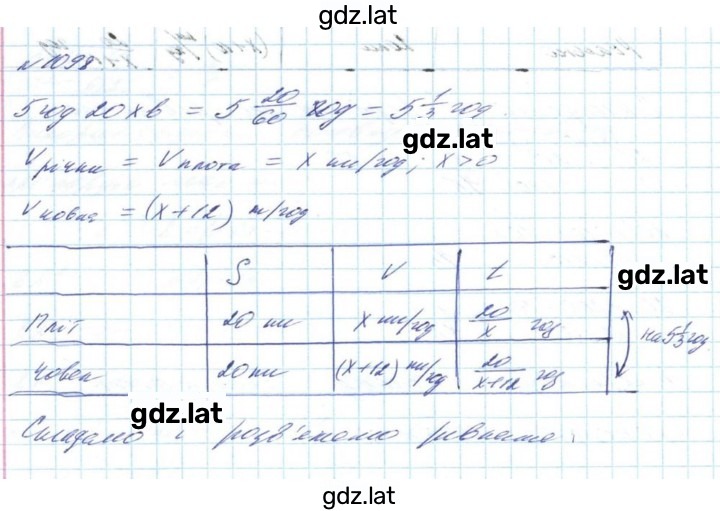 gdz.lat
№1098
5 год 20 хв = 5 20/60 год = 5 1/3 год
gdz.lat
V річки = V плота = x км/год; x>0
V човна = (x+12) км/год
S V t
gdz.lat
Пліт 20 км x км/год 20/x год
на 5 1/3 год
Човен 20 км (x+12) км/год 20/(x+12) год
gdz.lat
Складемо і розв'яжемо рівняння:
gdz.lat